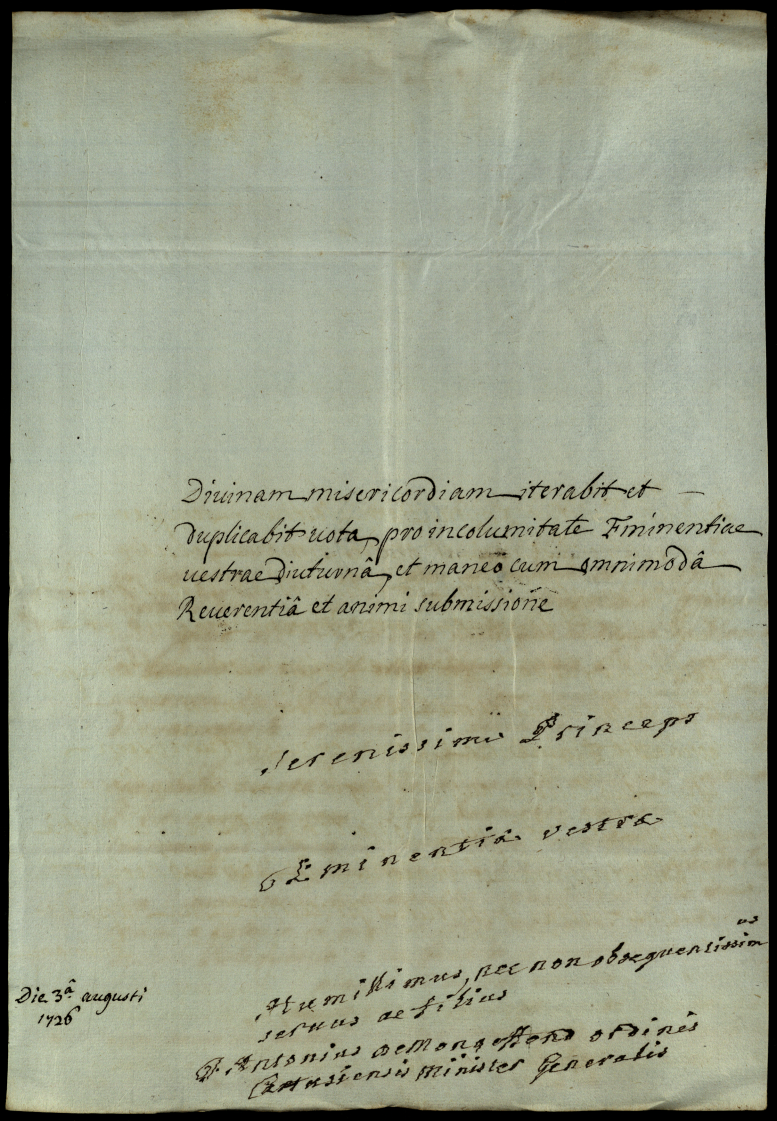 Diuinam misericordiam iterabit et
duplicabit uota, pro incolumitate Eminentiae
uestrae diuturnâ, et maneo cum omnimodâ
Reuerentiâ et animi submissione
Serenissime Princeps
Eminentia vestra
Humillimus, nec non obsequentissimus
seruus ac filius
F. Antonius de ordinis
Cartusiensis Minister Generalis
Die 3â augusti
1726